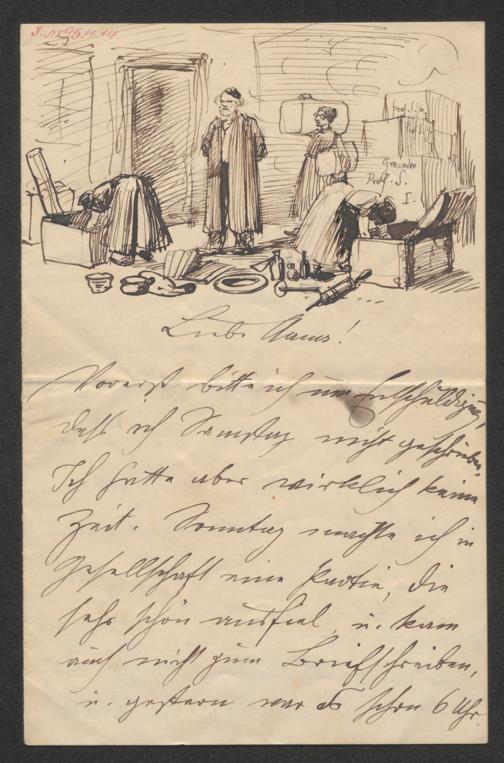 J. N. 95.414
Prof. S.
Gmunden
Prof. S.
I.
Liebe Mama!
Vorerst bitte ich um Entschuldigung,
daß ich Samstag nicht geschrieben,
Ich hatte aber wirklich keine
Zeit. Sonntag machte ich in
Gesellschaft eine Partie, die
sehr schön ausfiel, u. kam
auch nicht zum Briefschreiben,
u. gestern war es schon 6 Uhr